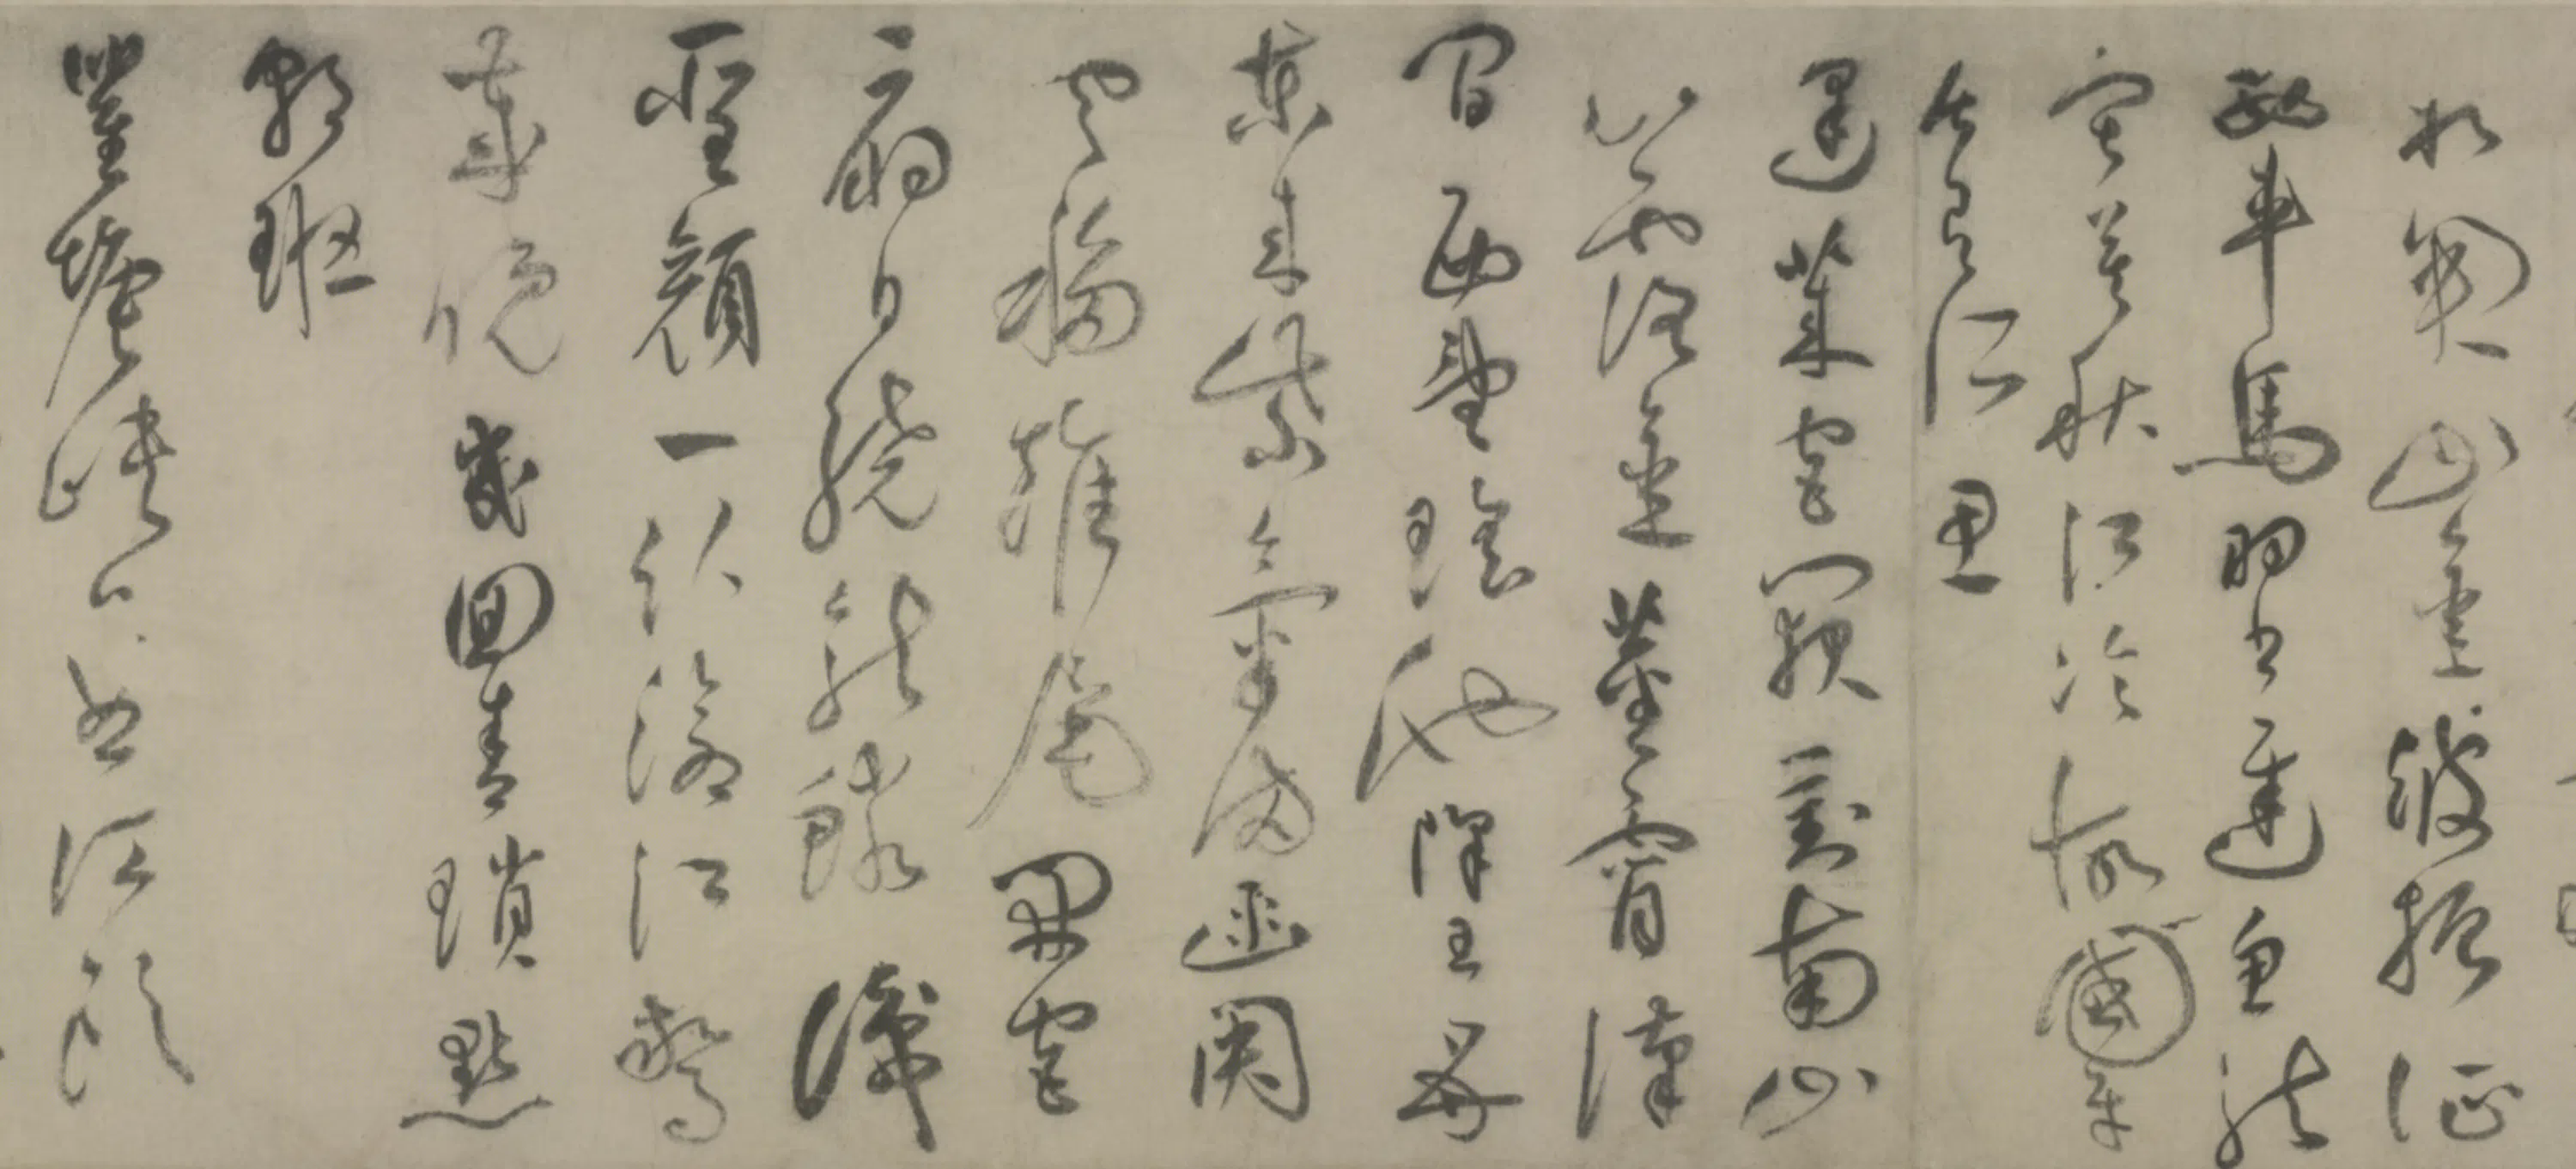 北關山金鼓振征
西車馬羽書遲魚龍
寂寞秋江冷故國平
居有所思
蓬萊宮闕對南山
承露金莖霄漢
間西望瑤池降王母
東來紫氣滿函關
雲移雉尾開宮
扇日繞龍鱗識
聖顏一臥滄江驚
歲晚幾回青瑣點
朝班
瞿塘峽口曲江頭